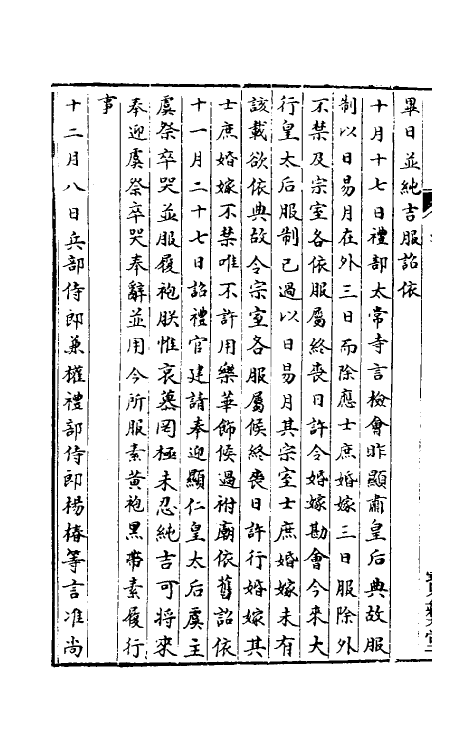 畢日並純吉服詔依
十月十七日禮部太常寺言檢會昨顯肅皇后典故服
制以日易月在外三日而除應士庶婚嫁三日服除外
不禁及宗室各依服屬終喪日許令婚嫁勘會今來大
行皇太后服制已過以日易月其宗室士庶婚嫁未有
該載欲依典故令宗室各服屬候終喪日許行婚嫁其
士庶婚嫁不禁唯不許用樂華飾候過祔廟依舊詔依
十一月二十七日詔禮官建請奉迎顯仁皇太后虞主
虞祭卒哭並服履袍朕惟哀慕罔極未忍純吉可將來
奉迎虞祭卒哭奉辭並用今所服素黃袍黑帶素履行
事
十二月八日兵部侍郎兼權禮部侍郎楊椿等言准尚